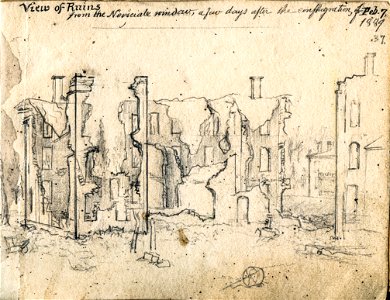 View of Ruins
from the Noviciate window, a few days after the conflagration of Feb. 7,
1889
37.